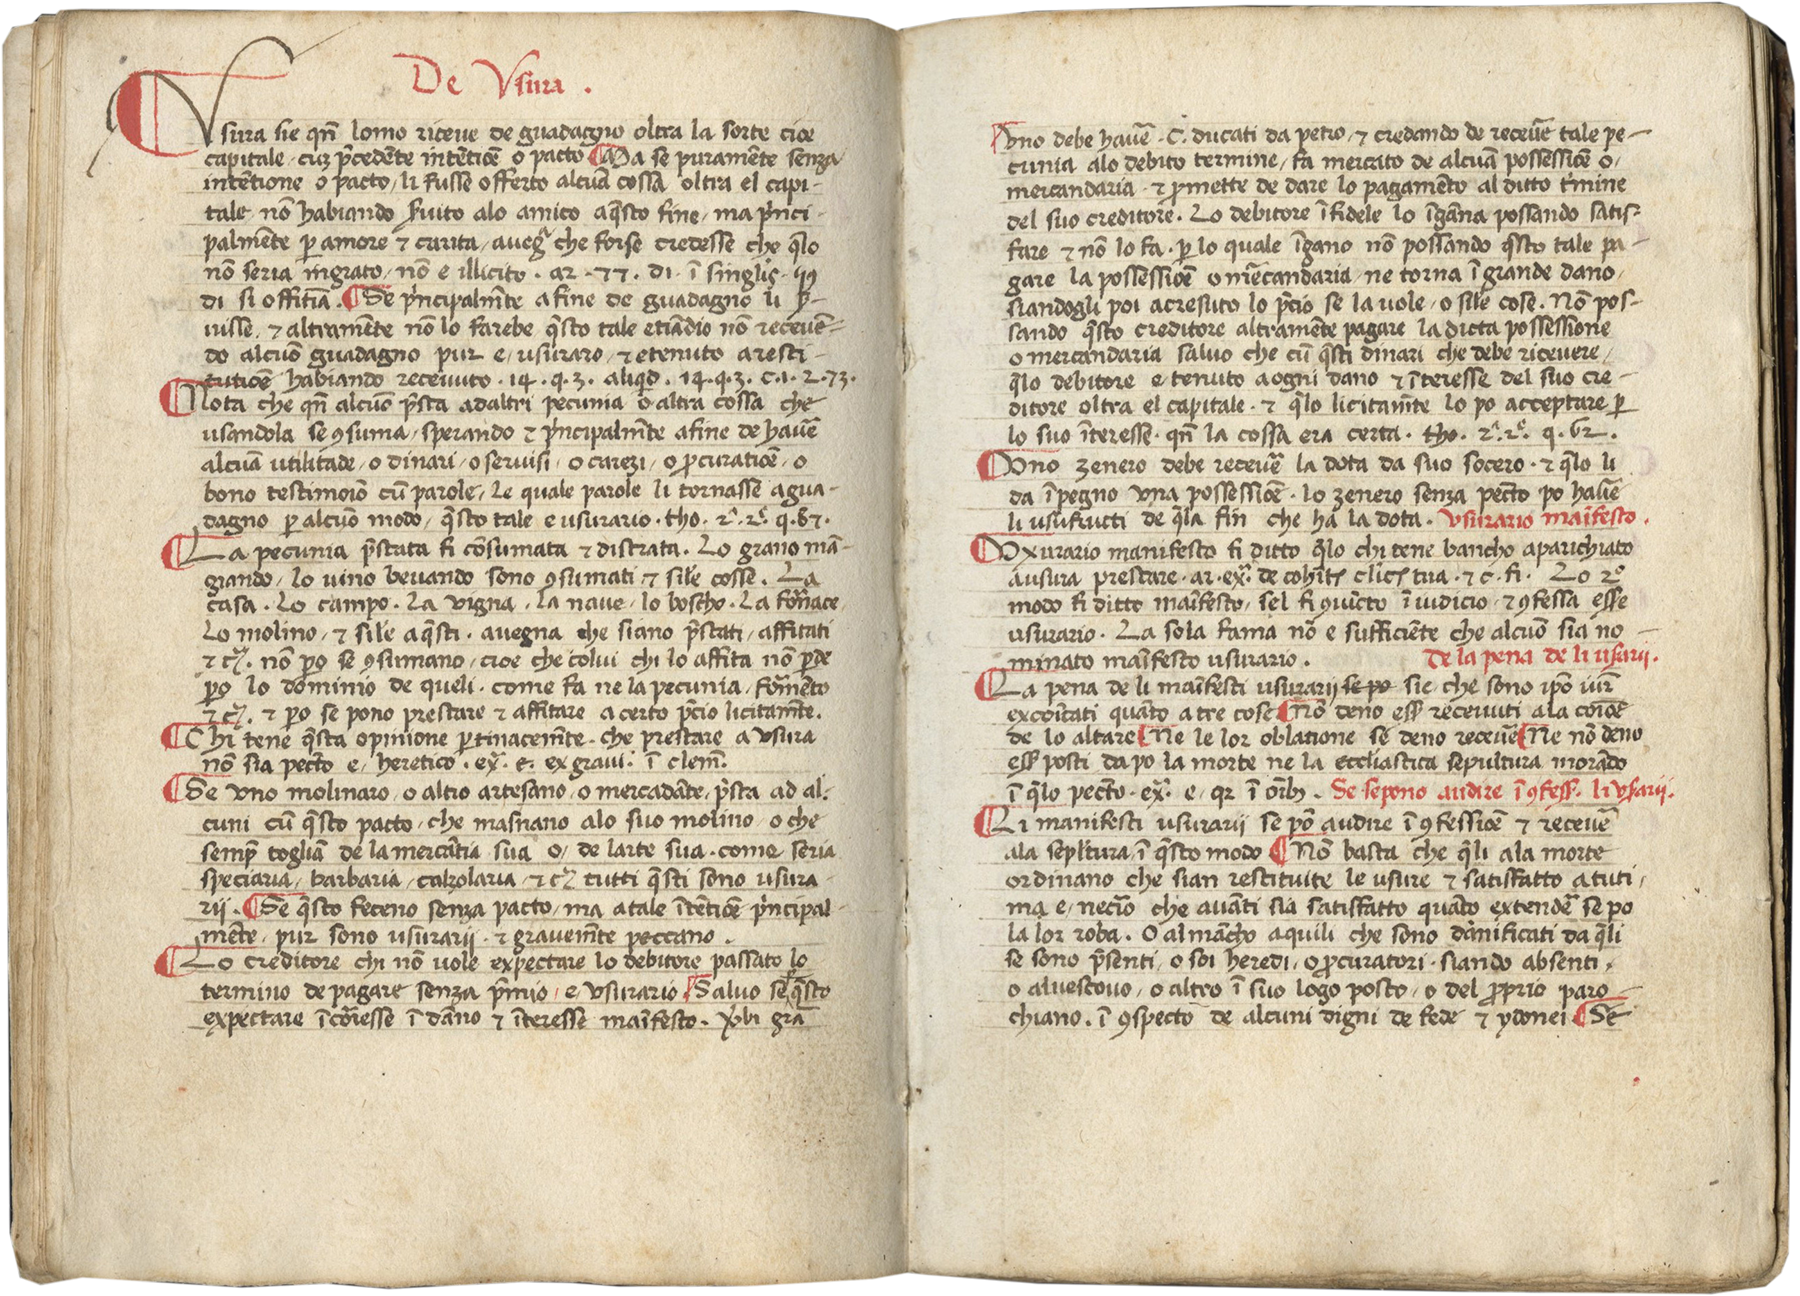 De Vsura .
Vsura sie qn̄ lomo riceue de guadagno oltra la sorte cioe
capitale · cuȝ p̄cedēte intētiōe o pacto Ma se puramēte senza
intētione o pacto / li fusse offerto alcuā cossa oltra el capi-
tale nō habiando ſuito alo amico aq̄sto fine / ma p̄nci-
palmēte p̱ amore ⁊ carita / aueg̃ che forse credesse che q̄lo
nō seria ingrato / nō e illicito · ar · 77 · di · ī singlis ·
di si offitiā . Se p̄ncipalmēte a fine de guadagno li
uisse / ⁊ altramēte nō lo farebe q̄sto tale etiādio nō receuē-
do alcuō guadagno pur e / usuraro / ⁊ e tenuto a resti-
tutiōe habiando receuuto · 14 · q · 3 · aliqd̄ · 14 · q · 3 · c · 1 · 2 · 73 ·
Nota che qn̄ alcuō p̄sta ad altri pecunia o altra cossa che
usandola se ꝯsuma / sperando ⁊ p̄ncipalmēte a fine de hauē
alcuā utilitade / o dinari / o seruisi / o carezi / o ꝓcuratiōe / o
bono testimoiō cū parole / le quale parole li tornasse a gua-
dagno p̱ alcuō modo / q̄sto tale e usurario · tho · 2ᵃ · 2ᵉ q · 67 ·
La pecunia p̄stata fi cōsumata ⁊ distrata . Lo grano mā-
grando / lo uino beuando sono ꝯsumati ⁊ sile cosse . La
casa . Lo campo . La vigna . la naue / lo boscho . La fornace /
Lo molino / ⁊ sile aq̄sti . auegna che siano p̄stati / affitati
⁊ cꝫ . nō p̱o se ꝯsumano / cioe che colui chi lo affita nō p̱de
p̱o lo dominio de queli . come fa ne la pecunia / formēto
⁊ cꝫ . ⁊ p̱o se pono prestare ⁊ affitare a certo p̄cio licitamēte .
Chi tene q̄sta opinione p̱tinacemēte che prestare a vsura
nō sia pecto e / heretico . ex̄ . e . ex graui . ī clem̄ .
Se vno molinaro / o altro artesano / o mercadāte / p̄sta ad al-
cuni cū q̄sto pacto / che masnano alo suo molino / o che
semp̱ togliā de la mercātia sua o / de larte sua . come seria
speciaria / barbaria / calzolaria / ⁊ cꝫ tutti q̄sti sono usura-
rij . Se q̄sto feceno senza pacto / ma a tale ītētiōe p̄ncipal-
mēte / pur sono usurarij . ⁊ grauemēte peccano .
Lo creditore chi nō uole expectare lo debitore passato lo
termino de pagare senza p̄mio / e / vsurario Saluo se q̄sto
expectare ī coresse ī dāno ⁊ īteresse maīfesto . Vbi gra
Vno debe hauē · C · ducati da petro / ⁊ credando de receuē tale pe-
cunia alo debito termine / fa mercato de alcuā possessiōe o /
mercandaria · ⁊ ꝓmette de dare lo pagamēto al ditto t̄mine
del suo creditore . Lo debitore īfidele lo īgāna possando satis-
fare ⁊ nō lo fa · p̱ lo quale īgano nō possando q̄sto tale pa-
gare la possessiōe o mercandaria / ne torna ī grande dano /
siandogli poi acresuto lo p̄cio se la uole / o sile cose . Nō pos-
sando q̄sto creditore altramēte pagare la dicta possessione
o mercandaria saluo che cū q̄sti dinari che debe riceuere /
q̄lo debitore e / tenuto a ogni dano ⁊ īteresse del suo cre-
ditore oltra el capitale · ⁊ q̄lo licitamēte lo po acceptare p̱
lo suo īteresse · qn̄ la cossa era certa · tho · 2ᵃ · 2ᵉ · q · 62 .
Vno zenero debe receuē la dota da suo socero · ⁊ q̄lo li
da īpegno vna possessiōe · lo zenero senza pecto po hauē
li usufructi de q̄la fin che ha la dota . Vsurario maīfesto .
Vxurario manifesto fi ditto q̄lo chi tene bancho aparichiato
a usura prestare · ar · ex̄ · de cohit · clic · tua · ⁊ c · fi · Lo 2º
modo fi ditto maīfesto / sel fi ꝯuicto ī iudicio / ⁊ ꝯfessa esse
usurario . La sola fama nō e sufficiēte che alcuō sia no-
minato maīfesto usurario .
De la pena de li usarij .
La pena de li maīfesti usurarij se po sie / che sono ip̄o iur̄
excoīcati quāto a tre cose Nō deno ess̄ receuuti a la coiōe
de lo altare Ne le lor oblatione se deno receuē Ne nō deno
ess̄ posti da po la morte ne la ecclīastica sepultura morādo
ī q̄lo pecto · ex̄ · e · qr ī oīb . Se se pono audire ī ꝯfess · li vsarij .
Li manifesti usurarij se pō audire ī ꝯfessiōe ⁊ receuē
ala sepltura / ī q̄sto modo Nō basta che q̄li ala morte
ordinano che sian restituite le usure ⁊ satisfatto a tuti /
ma e / necio che auāti sia satisfatto quāto extendē se po
la lor roba . O al mācho a quili che sono dānificati da q̄li
se sono p̄senti / o soi heredi / o ꝓcuratori · siando absenti /
o al uescouo / o altro ī suo logo posto / o del ꝓprio paro-
chiano . ī ꝯspecto de alcuni digni de fede ⁊ ydonei Se